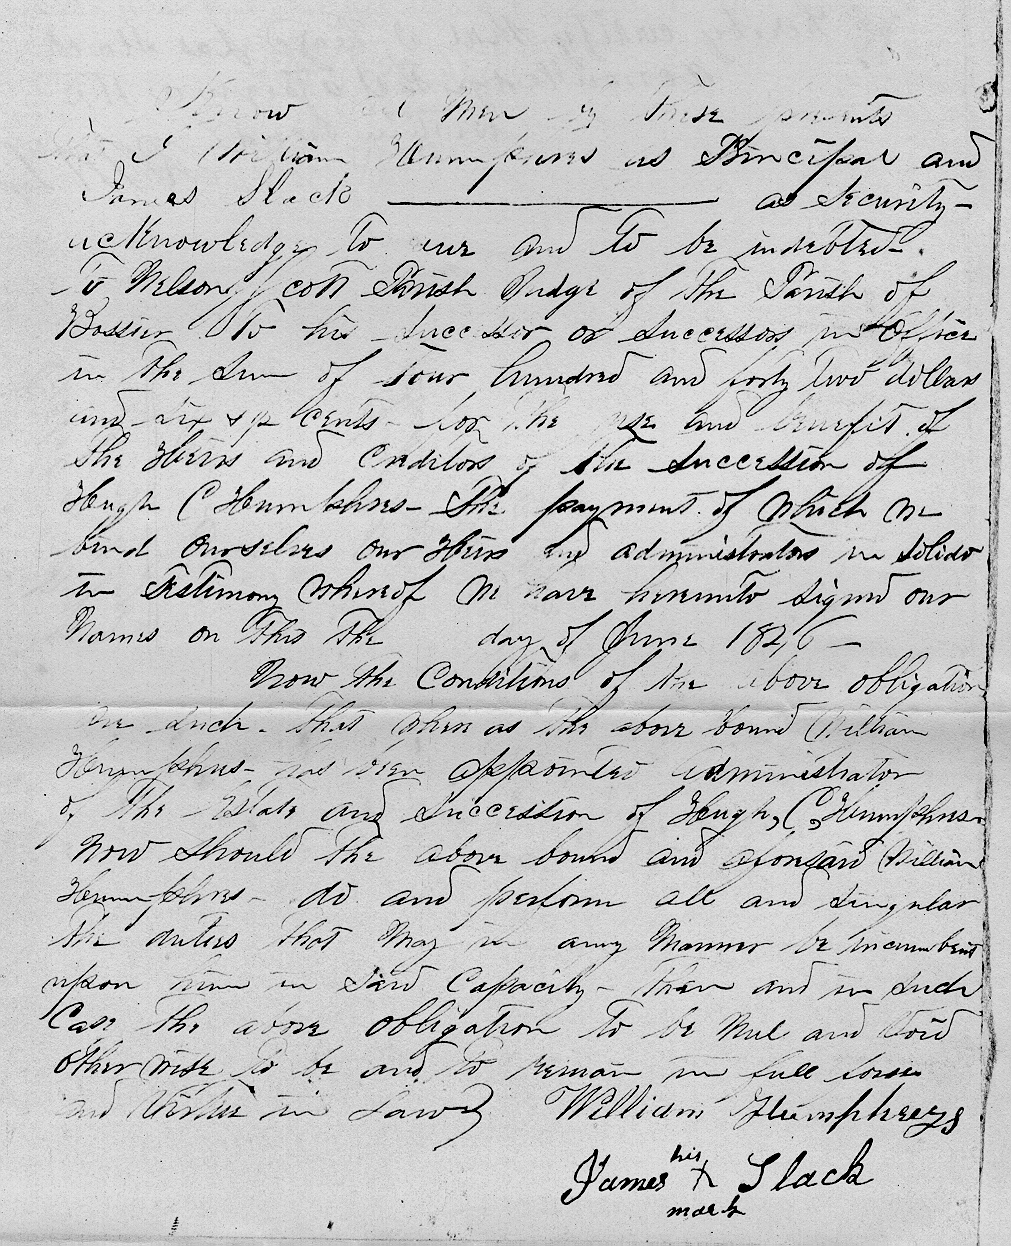 Know all Men by these presents
that I William Humphries as Principal and
James Slack ——— as Security –
acknowledge to owe and to be indebted
To Nelson Scott Parish Judge of the Parish of
Bossier To his Successor or Successors in Office
in the Sum of four hundred and forty two dollars
and six cents – for the use and benefit of
the Heirs and Creditors of the Succession of
Hugh C Humphries – The payment of which we
bind ourselves our Heirs and administrators in Solido
in Testimony whereof we have hereunto signed our
Names on this the day of June 1846 –
Now the Conditions of the above obligation
are such – that when as the above bound William
Humphries – has been appointed administrator
of the Estate and Succession of Hugh, C, Humphries –
Now should the above bound and aforesaid William
Humphries – do and perform all and singular
the duties that may in any Manner be incumbent
upon him in said Capacity – then and in such
Case the above obligation to be Null and Void
otherwise to be and to remain in full force
and Virtue in Law
William Humphreys
James his X mark Slack